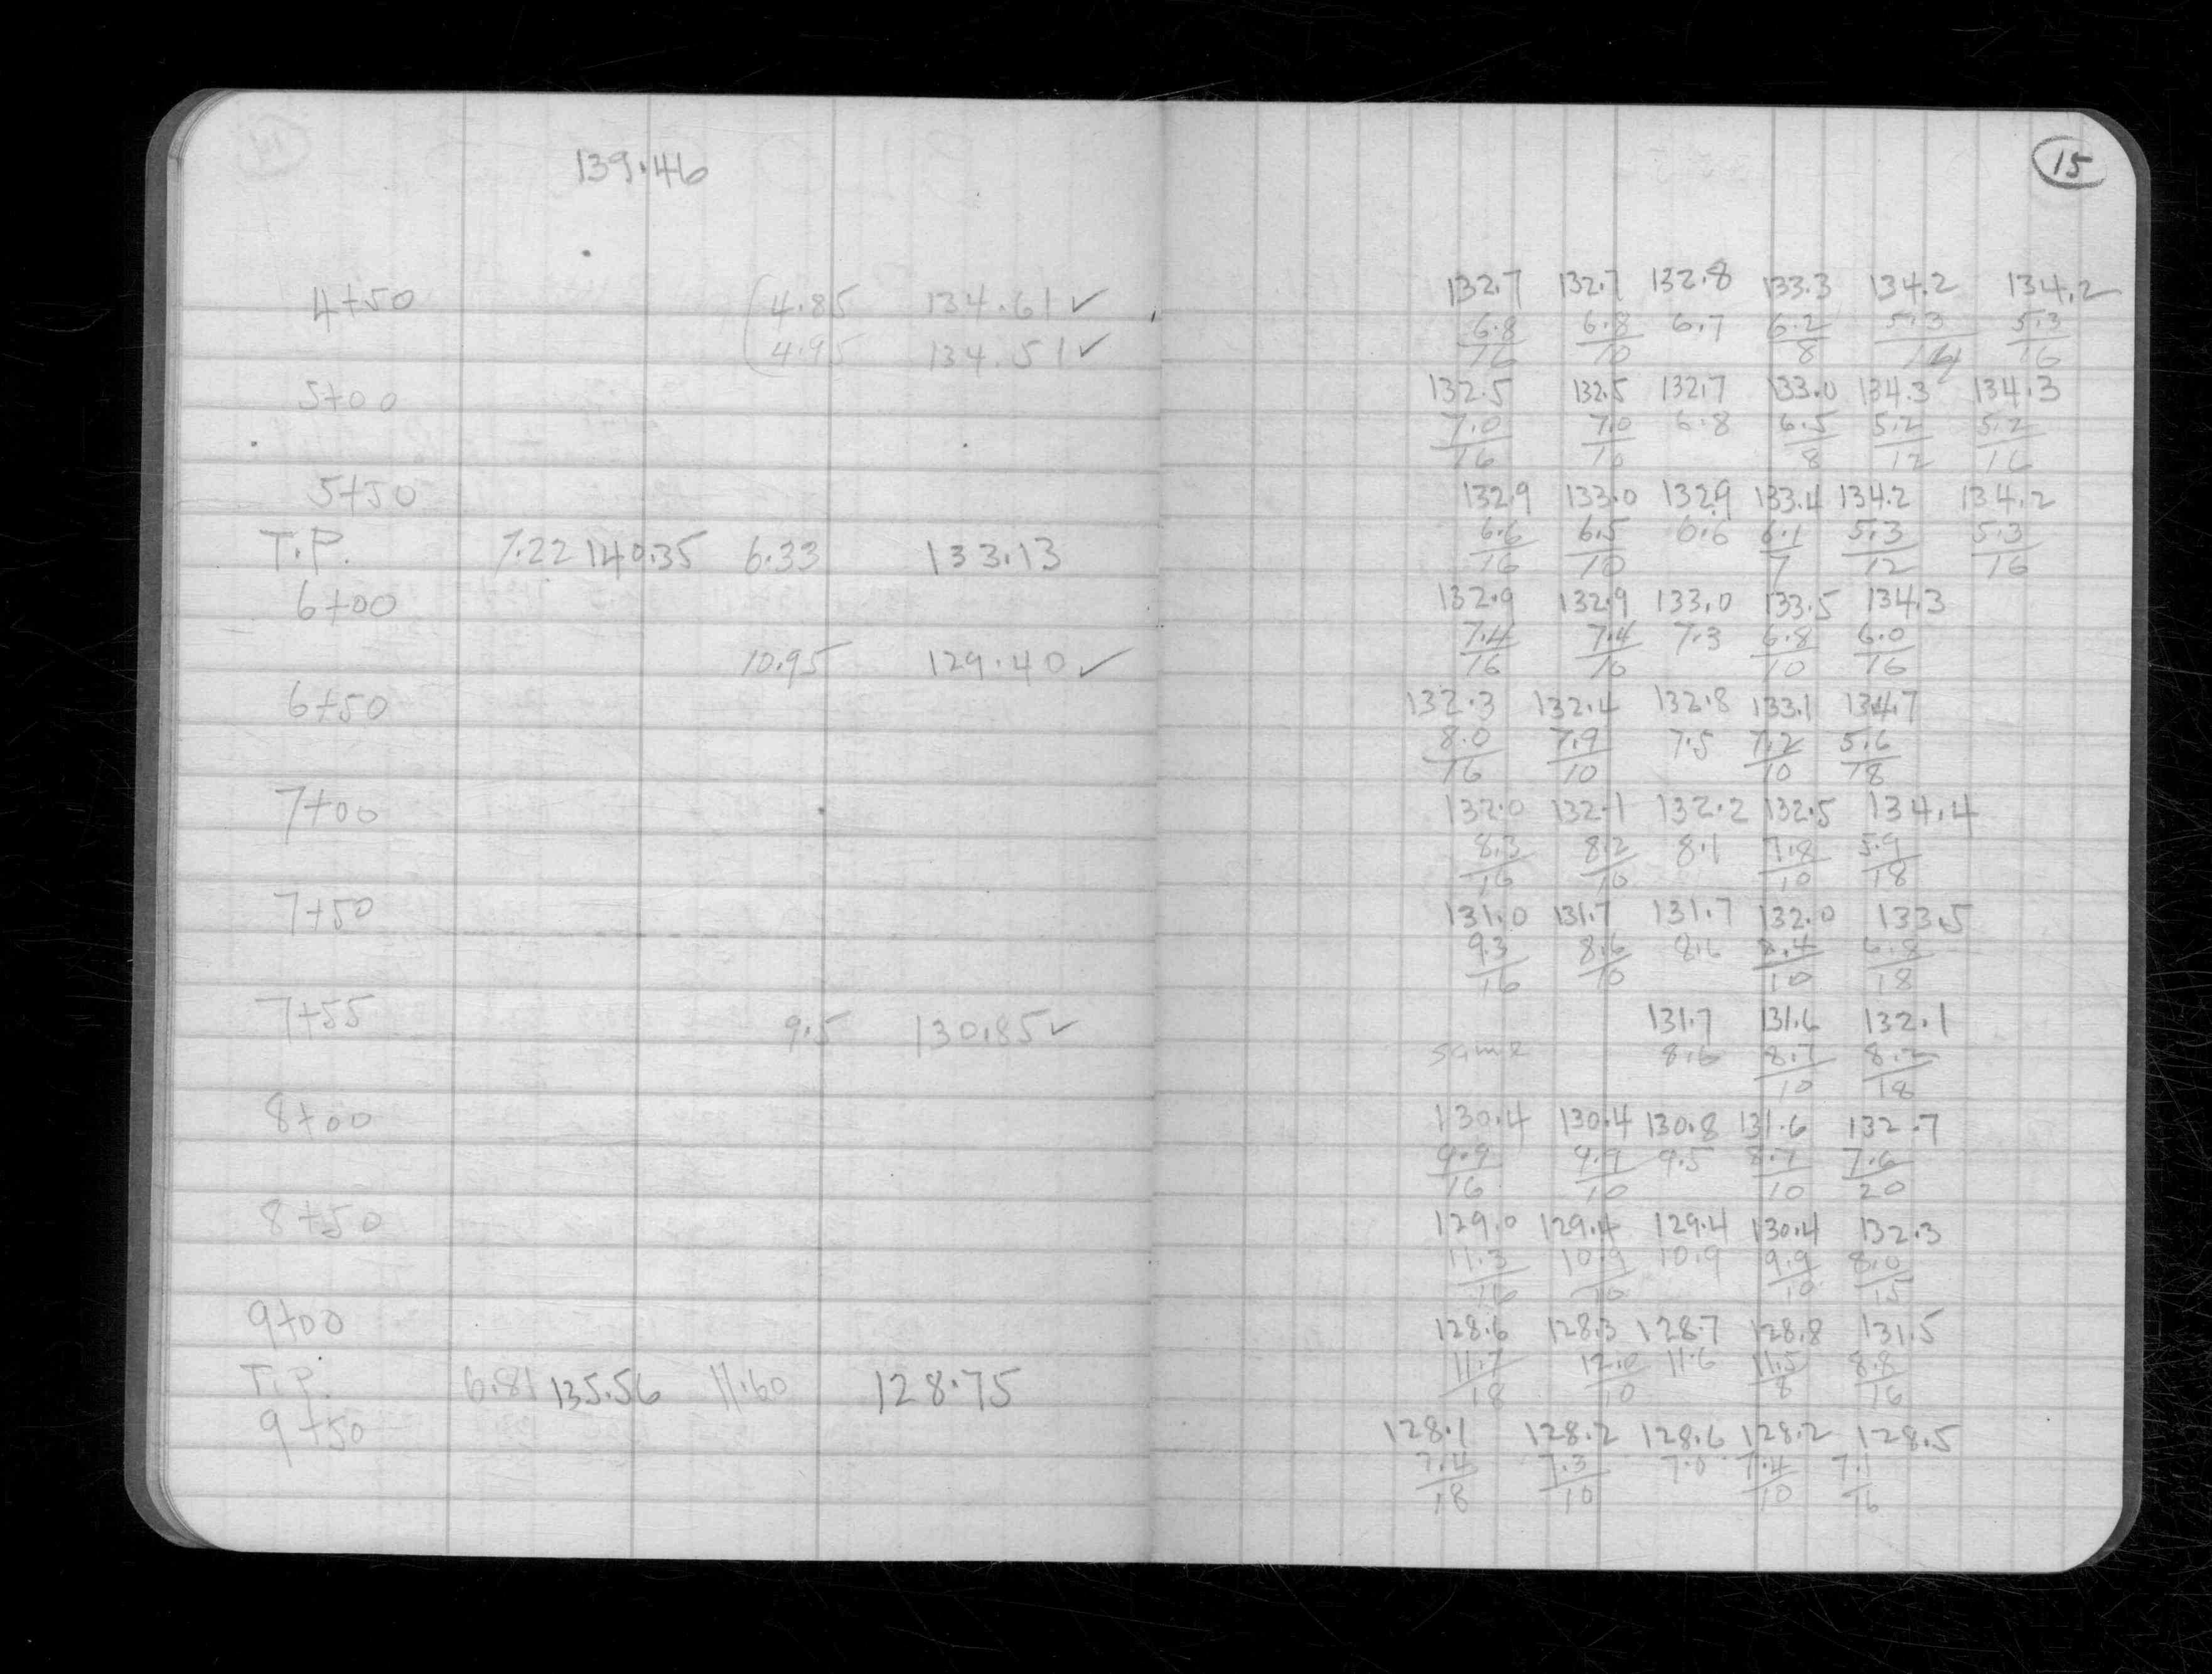 139.46
15
4+50 4.85 134.61✓ 132.7 132.7 132.8 133.3 134.2 134.2
6.8/16 6.8/10 6.7 6.2/8 5.3/14 5.3/16
4.95 134.51✓
5+00 132.5 132.5 132.7 133.0 134.3 134.3
7.0/16 7.0/10 6.8 6.5/8 5.2/12 5.2/16
5+50 132.9 133.0 132.9 133.4 134.2 134.2
T.P. 7.22 140.35 6.33 133.13 6.6/16 6.5/10 6.6 6.1/7 5.3/12 5.3/16
6+00 132.9 132.9 133.0 133.5 134.3
10.95 129.40✓ 7.4/16 7.4/10 7.3 6.8/10 6.0/16
6+50 132.3 132.4 132.8 133.1 134.7
8.0/16 7.9/10 7.5 7.2/10 5.6/18
7+00 132.0 132.1 132.2 132.5 134.4
8.3/16 8.2/10 8.1 7.8/10 5.9/18
7+50 131.0 131.7 131.7 132.0 133.5
9.3/16 8.6/10 8.6 8.4/10 6.8/18
7+55 9.5 130.85✓ 131.7 131.6 132.1
same 8.6 8.7/10 8.2/18
8+00 130.4 130.4 130.8 131.6 132.7
9.9/16 9.9/10 9.5 8.7/10 7.6/20
8+50 129.0 129.4 129.4 130.4 132.3
11.3/16 10.9/10 10.9 9.9/10 8.0/15
9+00 128.6 128.3 128.7 128.8 131.5
T.P. 6.81 135.56 11.60 128.75 11.7/18 12.0/10 11.6 11.5/8 8.8/16
9+50 128.1 128.2 128.6 128.2 128.5
7.4/18 7.3/10 7.0 7.4/10 7.1/16